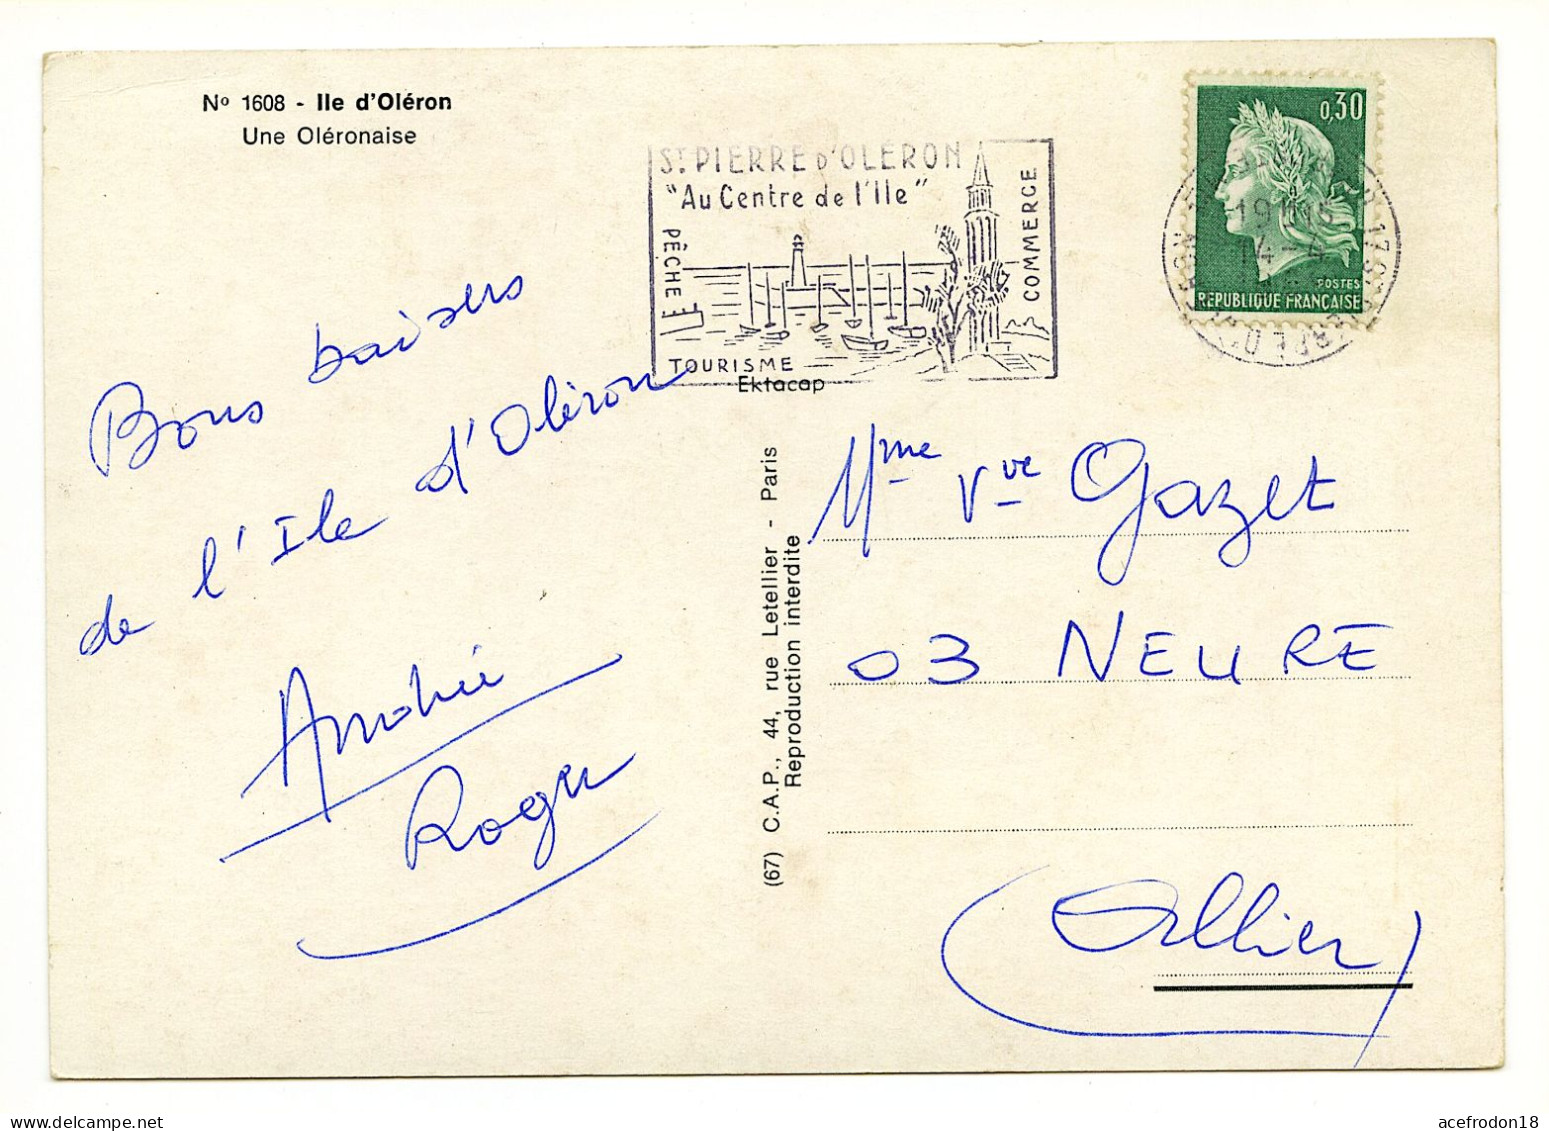 Nº 1608 - Ile d'Oléron
Une Oléronaise
St PIERRE D'OLÉRON
"Au Centre de l'Ile"
PÊCHE
COMMERCE
TOURISME
Ektacap
0,30
POSTES
REPUBLIQUE FRANÇAISE
19H15
14-4
Bons baisers
de l'Ile d'Oléron
Roger
(67) C.A.P., 44, rue Letellier - Paris
Reproduction interdite
Mme Vve Gazet
03 NEURE
(Allier)
acefrodon18